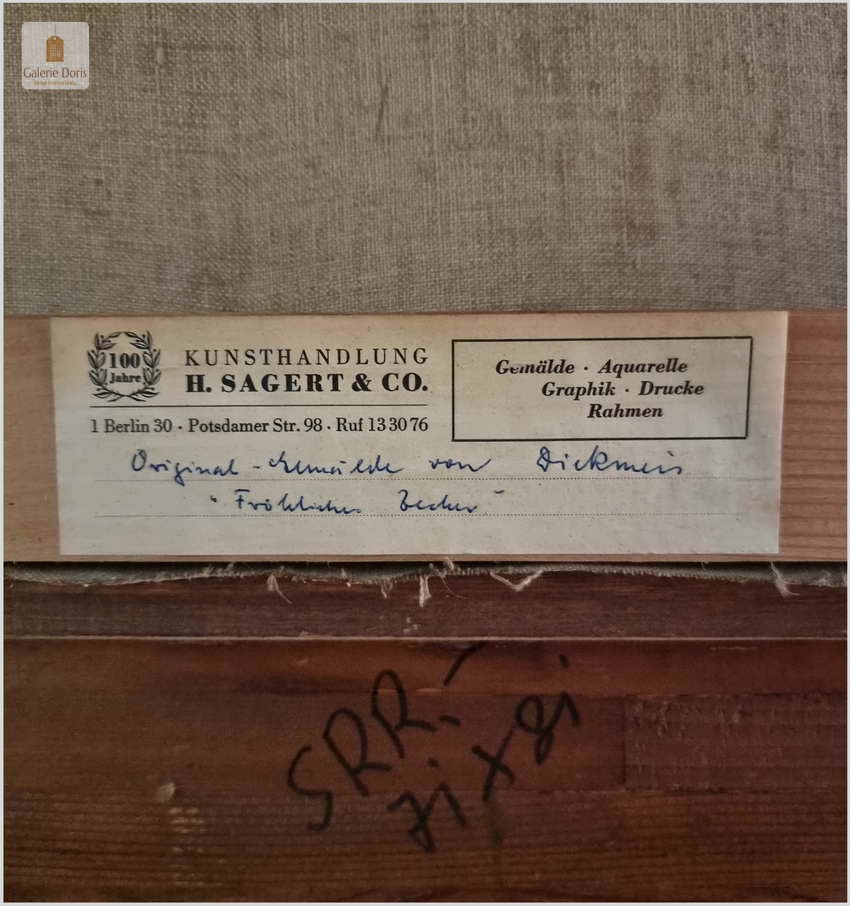 Galerie Doris
100
Jahre
KUNSTHANDLUNG
H. SAGERT & CO.
1 Berlin 30 · Potsdamer Str. 98 · Ruf 13 30 76
Gemälde · Aquarelle
Graphik · Drucke
Rahmen
Original-Gemälde von Dickmeis
"Fröhlicher Zecher"
SRR.-
71 x 81